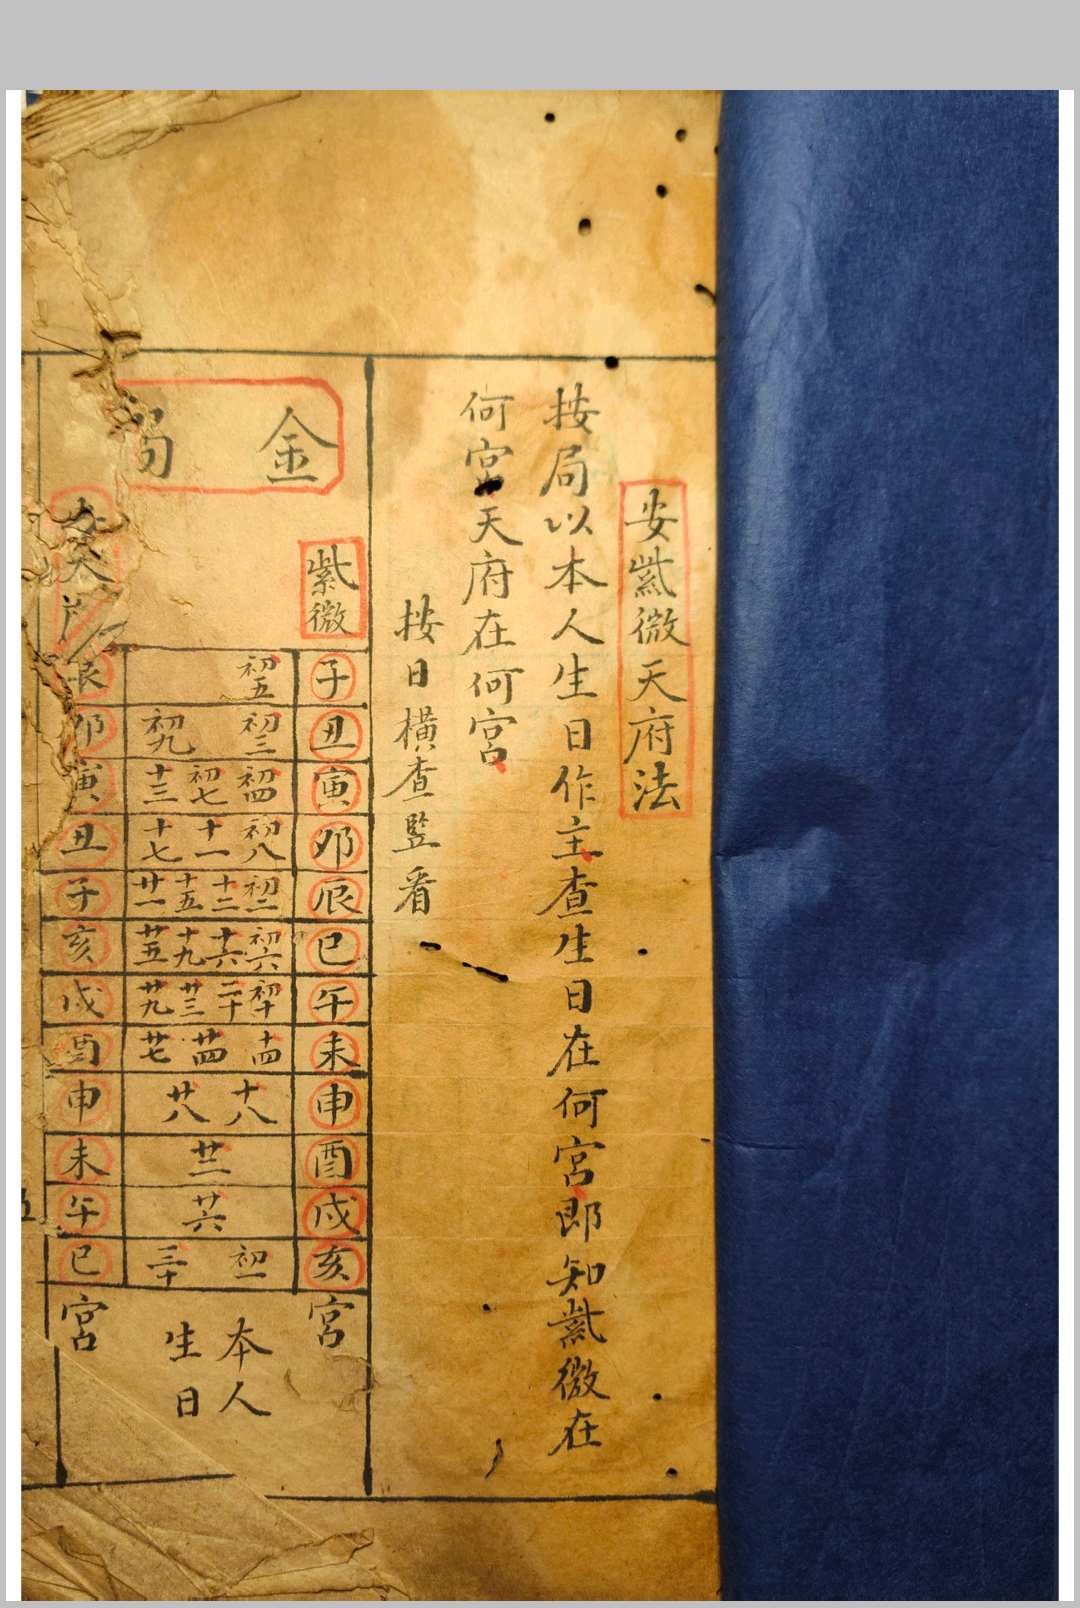 安紫微天府法
按局以本人生日作主查生日在何宮即知紫微在
何宮天府在何宮
按日橫查監看
金局
紫微 天府
子 初五 辰
丑 初三 初九 卯
寅 初四 初七 十三 寅
卯 初八 十一 十七 丑
辰 初二 十二 十五 廿一 子
巳 初六 十六 十九 廿五 亥
午 初十 二十 廿三 廿九 戌
未 十四 廿四 廿七 酉
申 十八 廿八 申
酉 廿二 未
戌 廿六 午
亥 初一 三十 巳
宮 本人生日 宮